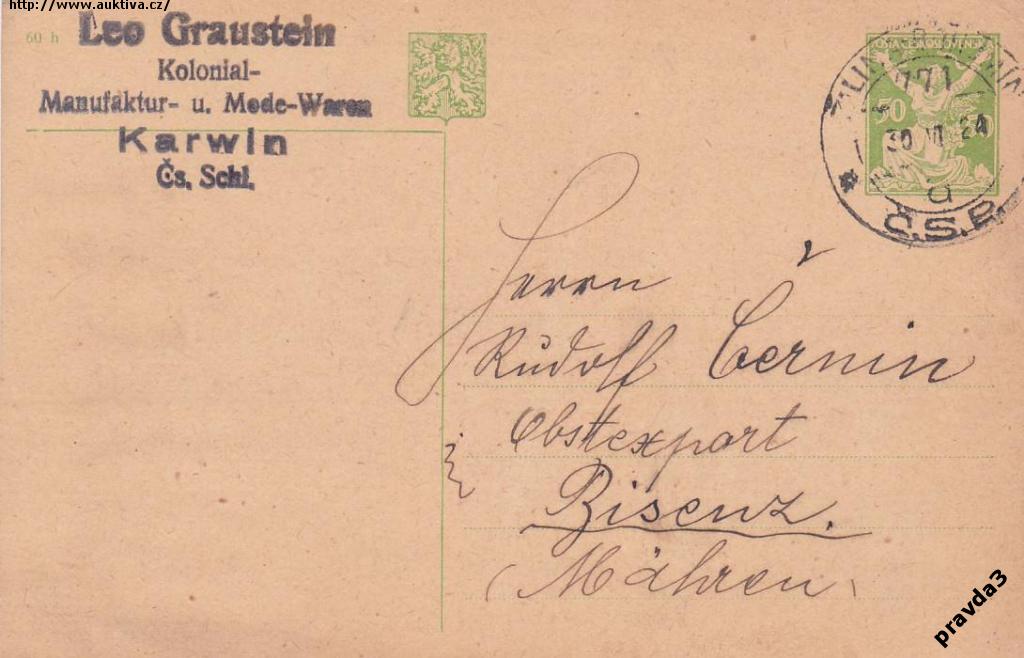 http://www.auktiva.cz/
60 h
Leo Graustein
Kolonial-
Manufaktur- u. Mode-Waren
Karwin
Čs. Schl.
771
30 VI 24
a
Č.S.P.
Herrn
Rudolf Černin
Obstexport
Bisenz.
(Mähren)
pravda3